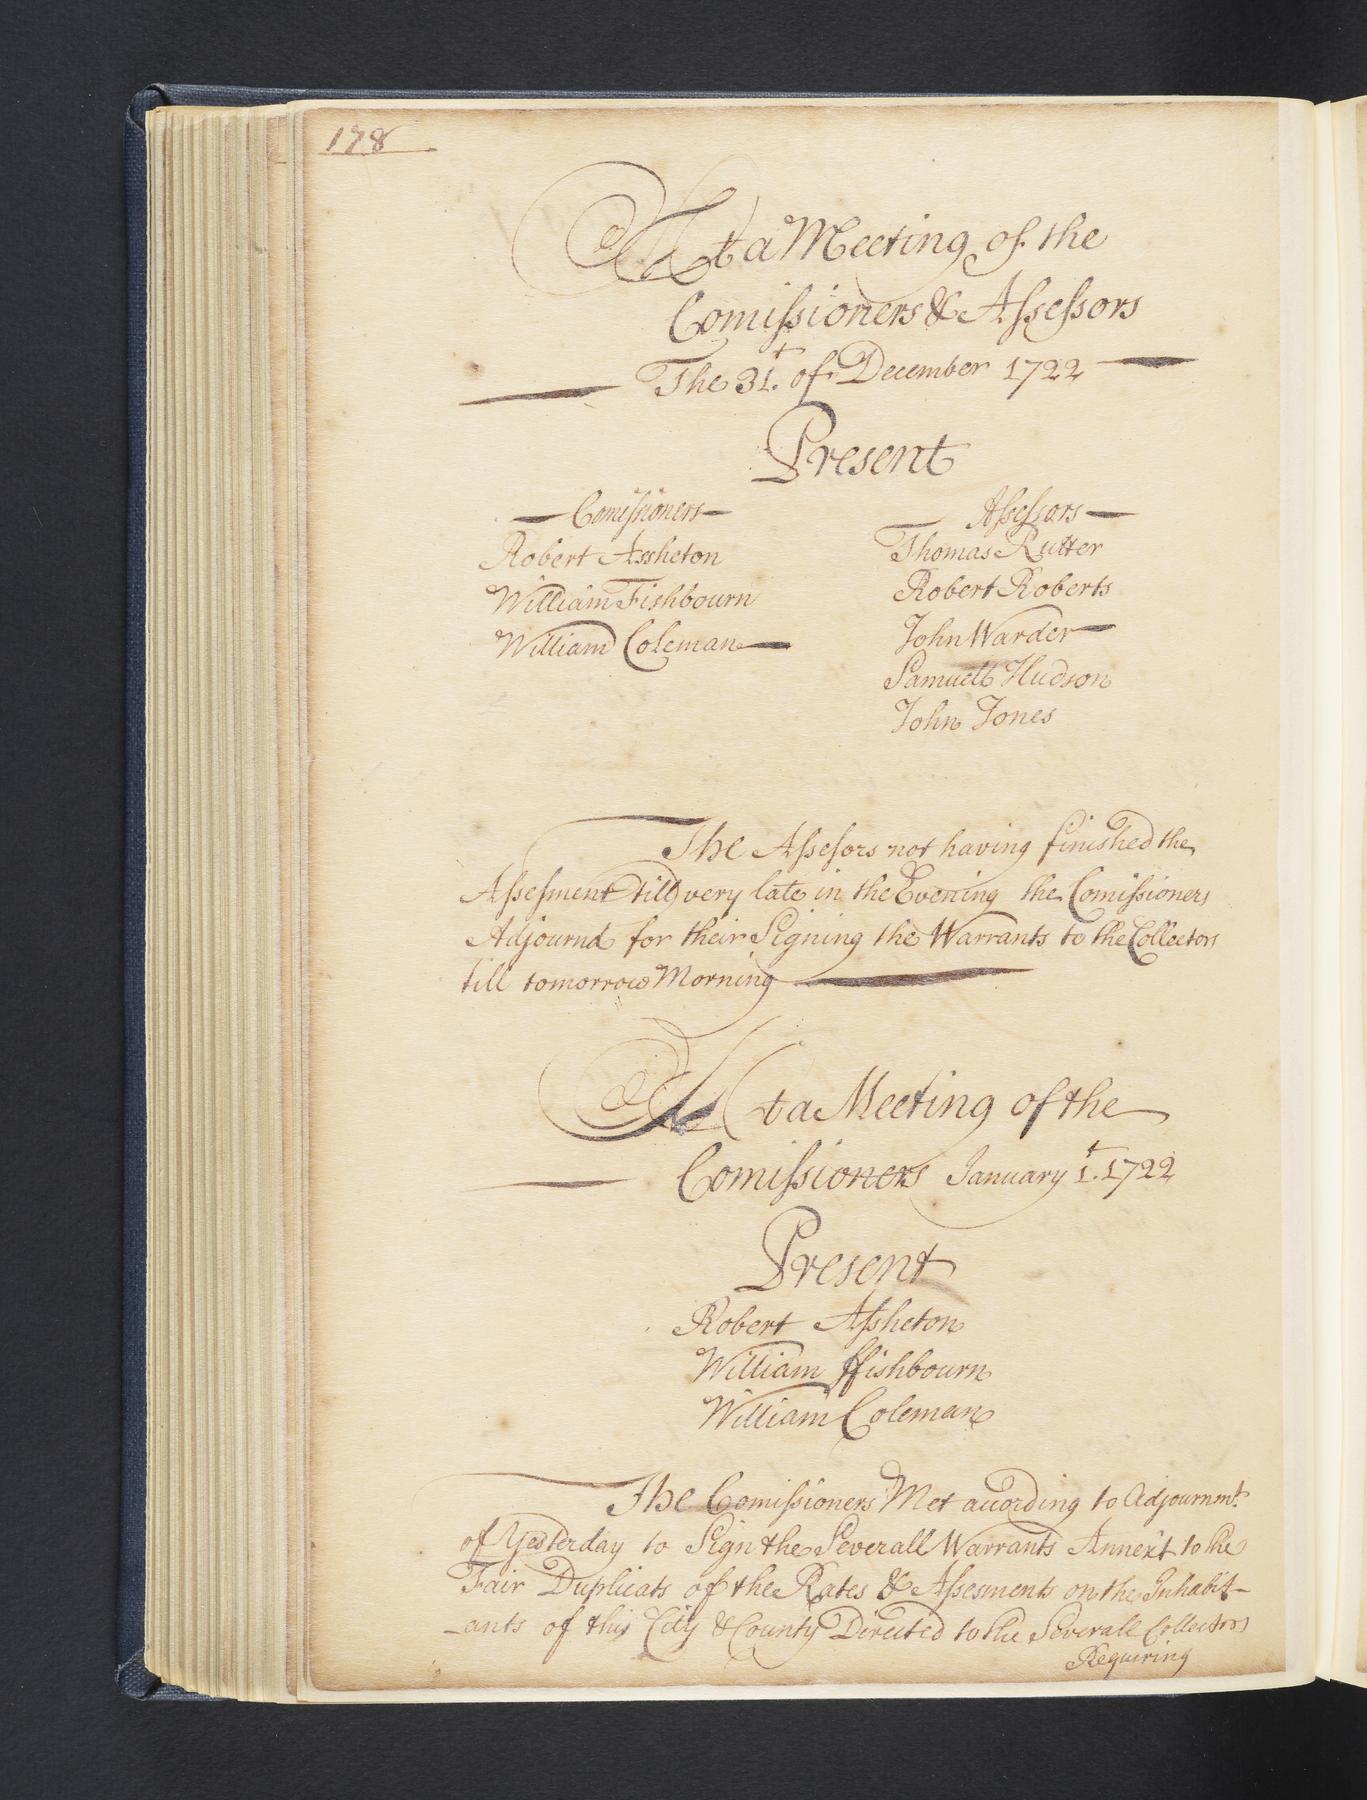 178
At a Meeting of the
Comiſsioners & Aſseſsors
The 31.t of December 1722
Present
Comiſsioners
Robert Assheton
William Fishbourn
William Coleman
Aſseſsors
Thomas Rutter
Robert Roberts
John Warder
Samuell Hudson
John Jones
The Aſseſors not having finished the
Aſseſment till very late in the Evening the Comiſsioners
Adjournd for their Signing the Warrants to the Collectors
till tomorrow Morning
At a Meeting of the
Comiſsioners January 1.t 1722
Present
Robert Aſsheton
William ffishbourn
William Coleman
The Comiſsioners Met acording to Adjournmt.
of Yesterday to Sign the Severall Warrants Annex't to the
Fair Duplicats of the Rates & Aſsesments on the Inhabit-
-ants of this City & County Directed to the Severall Collectors
Requiring